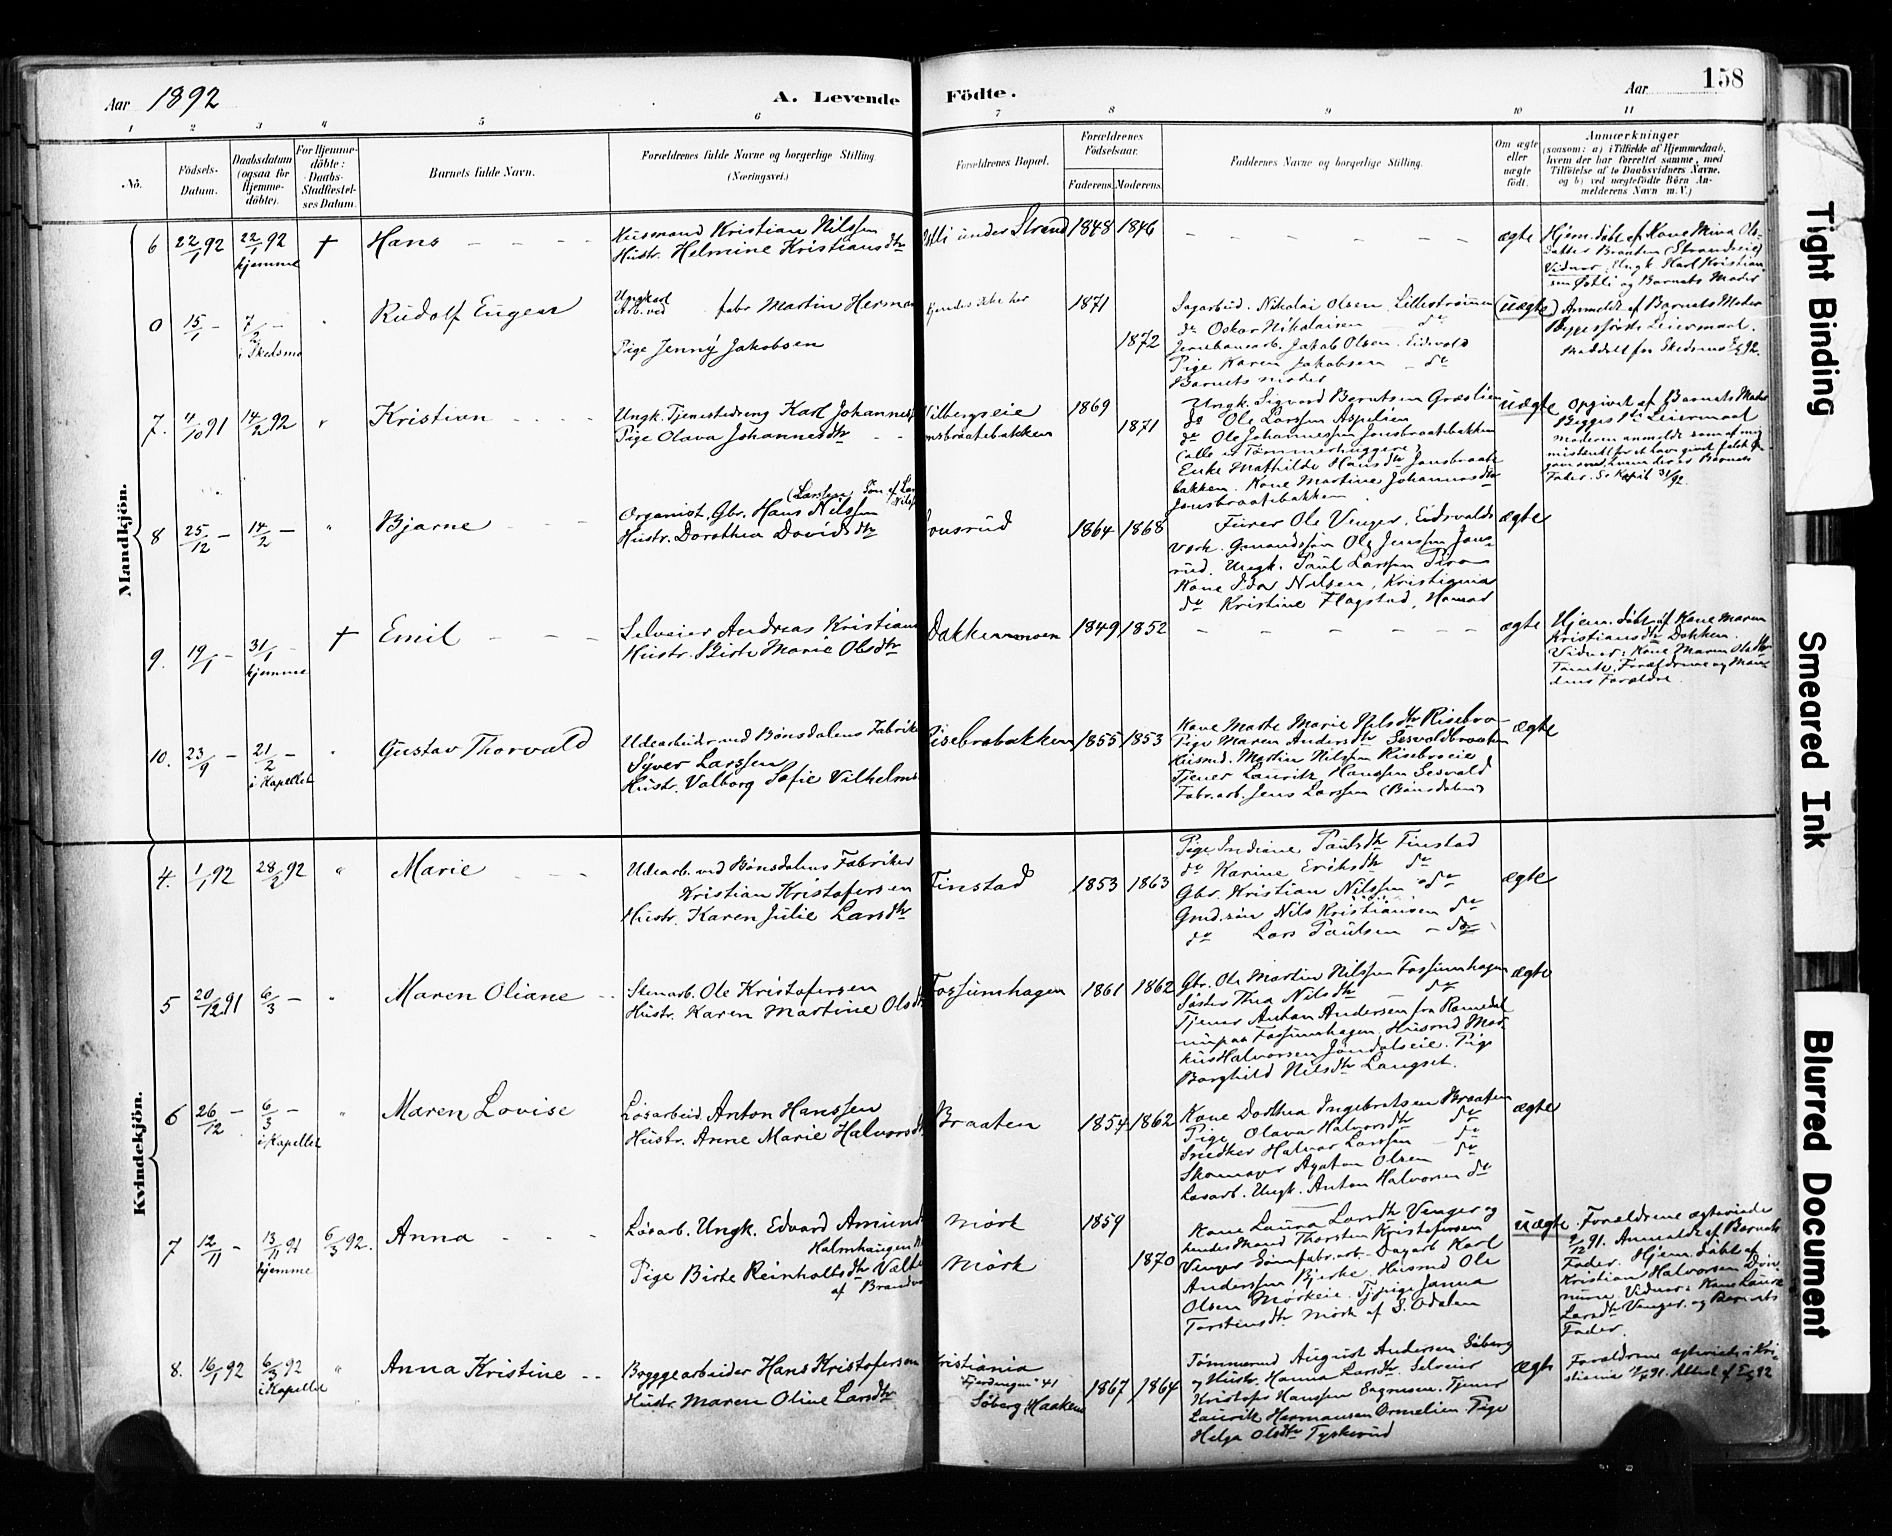 Aar 1892
A. Levende Födte.
Aar 158
1 2 3 4 5 6 7 8 9 10 11
No.
Födsels-Datum.
Daabsdatum (ogsaa for Hjemme-döbte).
For Hjemme-döbte: Daabs-Stadfæstel-ses Datum.
Barnets fulde Navn.
Forældrenes fulde Navne og borgerlige Stilling
(Næringsvei.)
Forældrenes Bopæl.
Forældrenes Födselsaar.
Faderens. Moderens.
Faddernes Navne og borgerlige Stilling.
Om ægte eller uægte födt.
Anmærkninger
(saasom: a) i Tilfælde af Hjemmedaab,
hvem der har forrettet samme, med
Tilföielse af to Daabsvidners Navne,
og b) ved uægtefödte Börn An-
melderens Navn m. V.)
Mandkjön.
6 22/1 92 22/1 92 hjemme † Hans
Husmand Kristian Nilssen
Hustr. Helmine Kristiansdtr
under Strand 1848 1846 ægte
Hjem. døbt af Kone
Vidner: Ungk. Karl Kristian-
sen Østli og Barnets Moder
0 15/1 7/2 i Skedsmo Rudolf Eugen
Ungkarl Martin Herman
Pige Jenny Jakobsen
kjendes ikke her 1871
1872
Sagarbeid. Nikolai Olsen Lillestrømmen
do Oskar Nikolaisen do
Jernbanearb. Jakob Olsen Eidsvold
Pige Karen Jakobsen do
Barnets moder
(uægte) Anmeldt af Barnets Moder
Begges første Leiermaal.
Meddelt fra Skedsmo
7. 4/10 91 14/2 92 " Kristian
Ungk. Tjenestedreng Karl Johannes
Pige Olava Johannesdtr
1869
1871
Ungk. Sigvard Berntsen Græslien
do Ole Larssen Aspelien
do Ole Johannessen Jonsbraatebakken
(alle er Tømmerhuggere)
Enke Mathilde Hansdtr Jonsbraate
bakken. Kone Martine Johannesdtr
Jonsbraatebakken
uægte Opgivet af Barnets Moder
Begges 1ste Leiermaal
8 25/12 14/2 " Bjarne
(Larssen) Søn af Lars
Organist, Gbr. Hans Nilssen
Hustr. Dorothea Davidsdtr
1864 1868
Furer Ole Venger, Eidsvolds
Værk. Gmandssøn Ole Jenssen Jons-
rud. Ungk. Paul Larssen
Kone Ida Nilsen, Kristiania
do Kristine Flagstad, Hamar
ægte
9. 19/1 31/1 hjemme † Emil
Selveier Andreas Kristians
Hustr. Birte Marie Olsdtr
Dakkenmoen 1849 1852 ægte
Hjem. døbt af Kone Maren
Kristiansdtr Dokken.
Vidner: Kone Maren Olsdtr
Forældrene og Man-
dens Forældre.
10. 23/9 21/2 i Kapellet " Gustav Thorvald
Udearbeider ved Bønsdalens Fabrike
Syver Larssen
Hustr. Valborg Sofie Vilhelms
Risebrobakken 1855 1853
Kone Marte Marie Nilsdtr Risebro
Pige Maren Andersdtr Sesvoldbraaten
Husmd. Martin Nilssen Risebroeie
Tjener Lauritz Hanssen Sesvold
Fabr.arb. Jens Larssen (Bønsdalen)
ægte
Kvindekjön.
4. 1/1 92 28/2 92 " Marie
Udearb. ved Bønsdalens Fabriker
Kristian Kristofersen
Hustr. Karen Julie Larsdtr
Finstad 1853 1863
Pige Indiane Paulsdtr Finstad
do Karine Eriksdtr do
Gbr. Kristian Nilssen do
Gmd.søn Nils Kristiansen do
do Lars Paulsen do
ægte
5 20/12 91 6/3 " Maren Oliane
Stenarb. Ole Kristofersen
Hustr. Karen Martine Olsdtr
Fossumhagen 1861 1862
Gbr. Ole Martin Nilssen Fossumhagen
Søster Thea Nilsdtr do
Tjener Anton Andersen fra Romedal
nu paa Fossumhagen. Husmd Mar-
kus Halvorsen Jøndalseie. Pige
Borghild Nilsdtr Langset.
ægte
6 26/12 6/3 i Kapellet " Maren Lovise
Løsarbeid. Anton Hanssen
Hustr. Anne Marie Halvorsdtr
Braaten 1854 1862
Kone Dorthea Ingebretsen Braaten
Pige Olava Halvorsdtr do
Snedker Halvor Larssen do
Skomager Agaton Olsen do
Løsarb. Ungk. Anton Halvorsen do
ægte
7 12/11 13/11 91 hjemme 6/3 92. Anna
Løsarb. Ungk. Edvard Amund
Halmhaugen
Pige Birte Reinholtsdtr
af Brandval
Mørk 1859
Mørk 1870
Kone Laura Larsdtr Venger og
hendes Mand Thorsten Kristofersen
Venger Dagarb Karl
Anderssen Bjerke. Husmd Ole
Olsen Mørkeie. Tj.pige Janna
Torstensdtr Mørk af S. Odalen
uægte Forældrene ægteviede
2/12 91. Anmeldt af Barnets
Fader. Hjem. døbt af
Kristian Halvorsen Døn-
num. Vidner: Kone Laura
Larsdtr Venger og Barnets
Fader.
8. 16/1 92 6/3 92 i Kapellet " Anna Kristine
Byggearbeider Hans Kristofersen
Hustr. Maren Oline Larsdtr
Kristiania
Søberg (Haaken 1867 1864
Tømmermd August Andersen Søberg
og Hustr. Hanna Larsdtr Selveier
Kristofer Hanssen Tjener
Lauritz Hermansen Ormelien Pige
Helga Olsdtr Tyskerud
ægte Forældrene ægteviede i Kri-
stiania
Tight Binding
Smeared Ink
Blurred Document